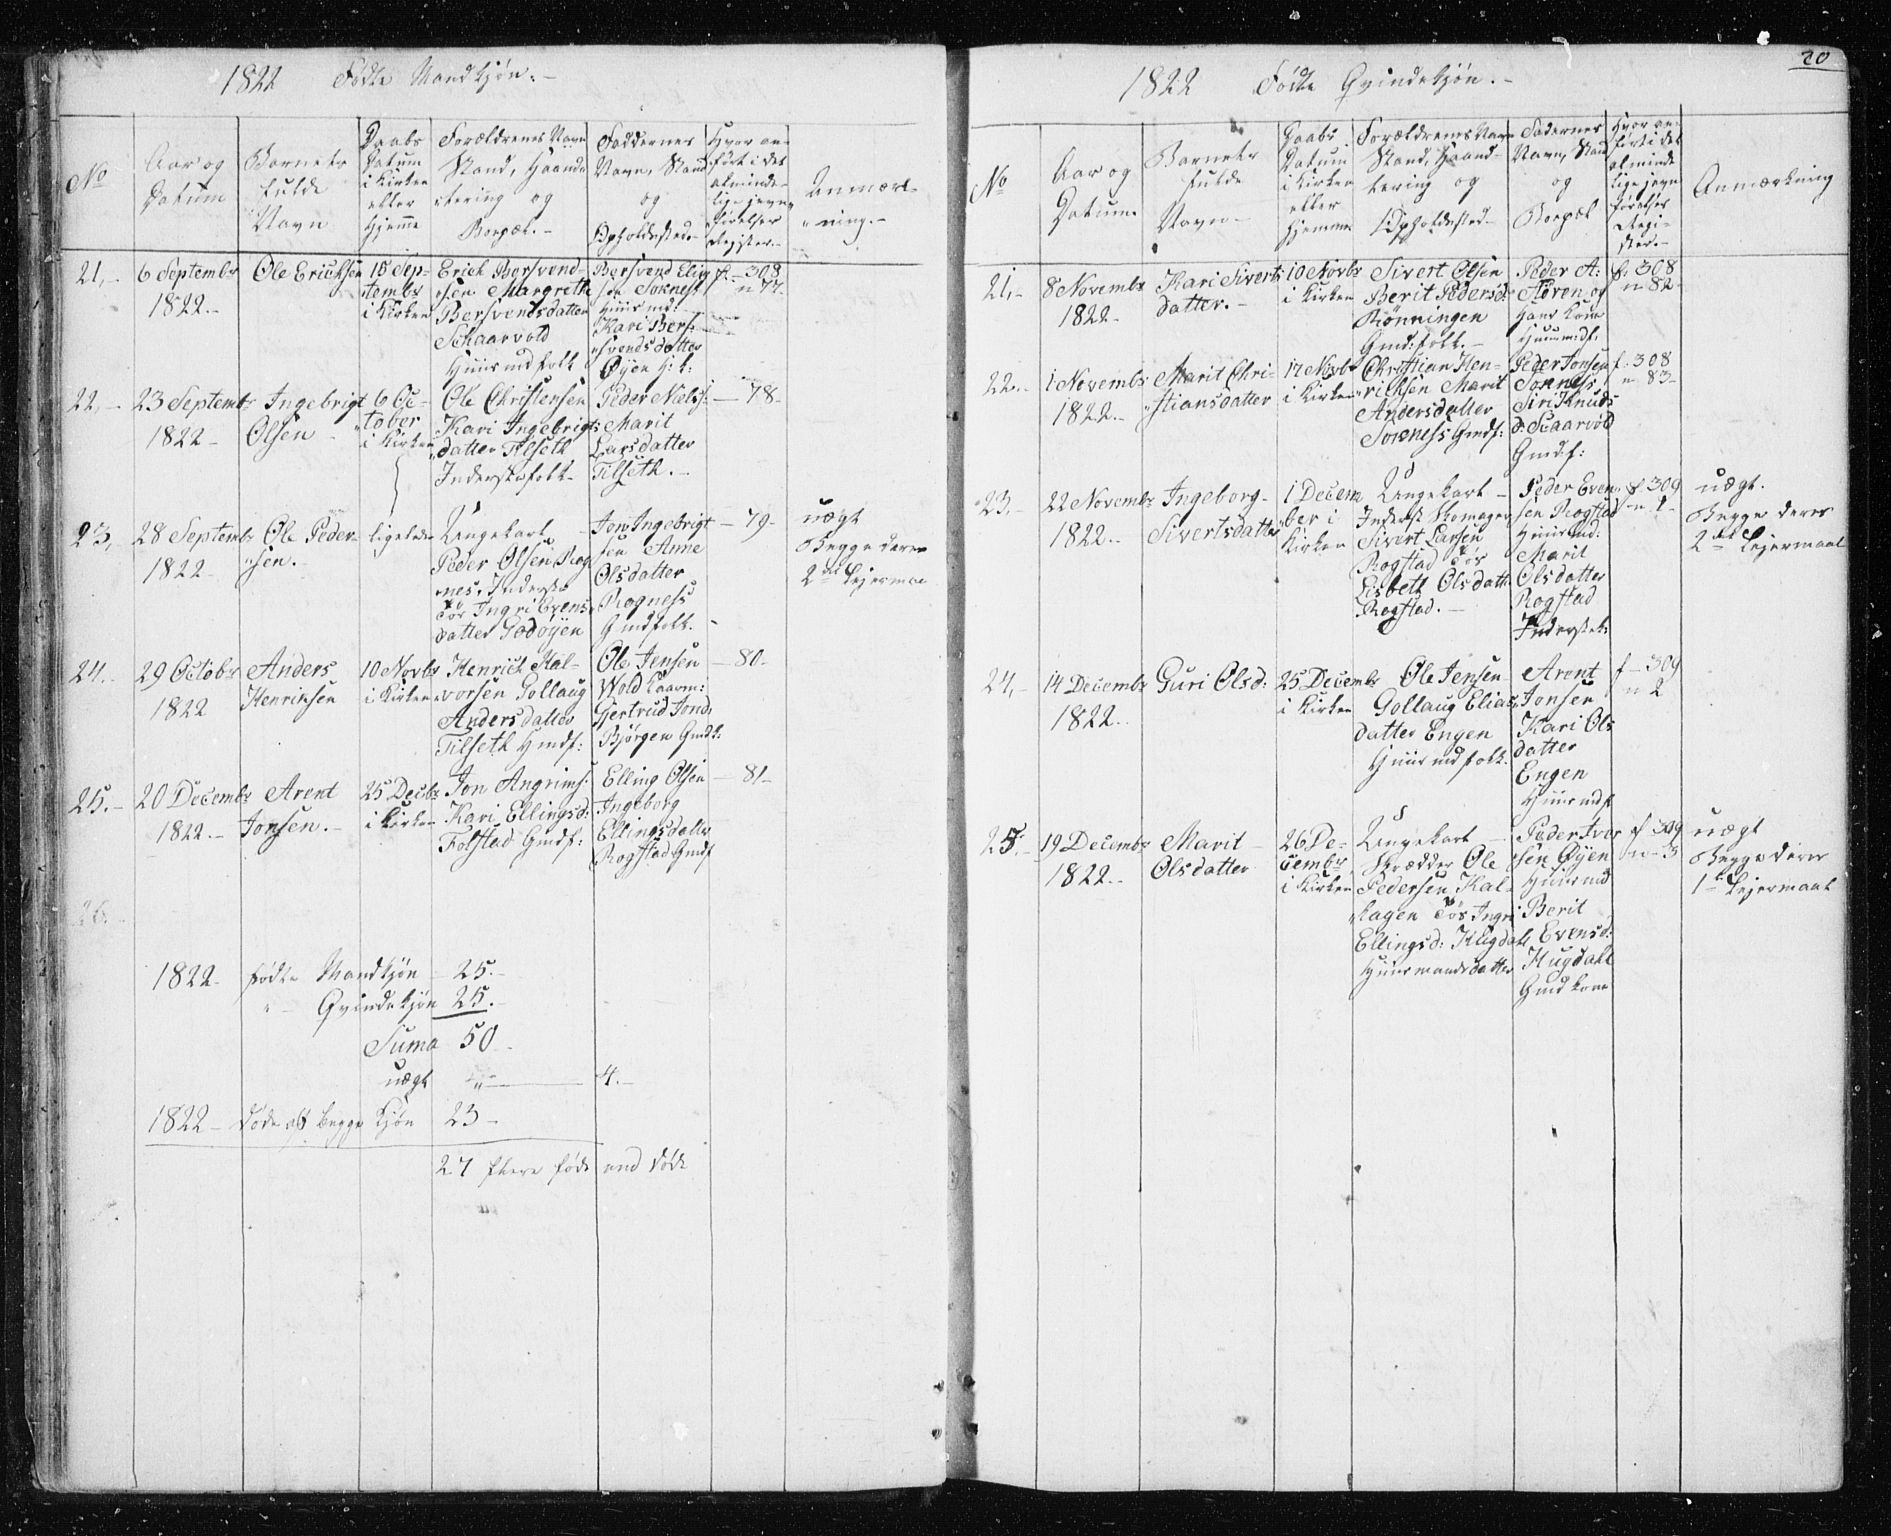 1822 Fødte Mandkjøn.-
No
Aar og
Datum
Barnets
fulde
Navn
Daabs
Datum
i Kirken
eller
Hjemme
Forældrenes Navn
Stand, Haand
tering og
Boepæl.-
Faddernes
Navn, Stand
og
Opholdssted-
Hvor an-
ført i det
alminde-
lige jevn
førelses
Register.-
Anmærk-
ning.-
21,- 6 Septembr
1822.-
Ole Erichsen
15 Sep-
tembr
i Kirken
Erich Bersvend-
sen Margreth
Bersvendsdatter
Schaarvold
Huusmdfolk
Bersvend Elig
sen Soknes
Huusmd:
Kari Bers-
svendsdatter
Øyen H: k:
f- 308
n 77-
22,- 23 Septembr
1822-
Ingebrigt
Olsen-
6 Oc-
tober
i Kirken
Ole Christensen
Kari Ingebrigts
datter Tilseth
Inderstfolk-
Peder Niels:
Marit
Larsdatter
Tilseth.-
- 78-
23, 28 Septembr
1822-
Ole Peder-
sen.
ligeledes
Ungekarl -
Peder Olsen Rog
nes, Inderst
Tøs Ingri Evens
datter Godøyen
Jon Ingebrigt
sen Anne
Olsdatter
Rogness
Gmdfolk.-
- 79-
uægt
Begge deres
2det Lejermaa
24.- 29 Octobr
1822
Anders
Henriksen
10 Novbr
i Kirken
Henrich Hal-
vorsen Gollaug
Andersdatter
Tilseth Hmdf:
Ole Jensen
Wold
Gjertrud Jonds
Bjørgen Gmdk:
- 80-
25.- 20 Decembr
1822.-
Arent
Jonsen.-
25 Decbr
i Kirken
Jon Angrims:
Kari Ellingsd:
Folstad Gmdf:
Elling Olsen
Ingeborg
Ellingsdatter
Rogstad Gmdf
- 81-
26.
1822- fødte Mandkjøn - 25.-
" - Qvindekjøn 25.-
Suma 50-
uægt " - 4.-
1822- døde af begge Kjøn 23-
27 flere fødte end døde
20
1822 Fødte Qvindekjøn.-
No
Aar og
Datum.
Barnets
fulde
Navn-
Daabs
Datum
i Kirken
eller
hjemme
Forældrenes Navn
Stand, Haand-
tering og
Opholdssted-
Fadernes
Navn, Stand
og
Boepæl
Hvor an-
ført i det
alminde
lige jevn
førelses
Regi-
ster.-
Anmærkning
21,- 8 Novembr
1822-
Kari Siverts
datter.-
10 Novbr
i Kirken
Sivert Olsen
Berit Pedersd:
Rønningen
Gmd:folk.-
Peder A:
Støren og
Hans Kone
Huusmdf.
f. 308
n 82-
22.- 1 Novembr
1822.-
Marit Chri-
stiansdatter
17 Novbr
i Kirken
Christian Hen-
richsen Marit
Andersdatter
Sokness Gmdf:
Peder Jonsen
Soknes
Siri Knuds
d: Scaarvold
Gmdf:
f- 308
n 83-
23,- 22 Novembr
1822.-
Ingeborg-
Sivertsdatter
1 Decem
ber i
Kirken
Ungekarl -
Inderst Skomager
Sivert Larsen
Rogstad Tøs
Lisbeth Olsdatt:
Rogstad.-
Peder Even
sen Rogstad
Huusmd:
Marit
Olsdatter
Rogstad
Inderstek:
f 309
n- 1-
uægt.
Begge deres
2det Lejermaal
24,- 14 Decembr
1822.
Guri Olsd:
25 Decembr
i Kirken
Ole Jensen
Gollaug Elias
datter Engen
Huusmdfolk.
Arent
Jonsen
Kari Ols
datter
Engen
Huusmdf
f- 309
n 2
25.- 19 Decembr
1822.-
Marit-
Olsdatter
26 De-
cembr
i Kirken
Ungekarl -
Skrædder Ole
Pedersen Kal-
ragen Tøs Ingri
Ellingsd: Hugdahl
Huusmandsdatter
Peder Iver
sen Øyen
Huusmd
Berit
Evensd:
Hugdahl
Gmdkone
f 309
n- 3
uægt
Begge deres
1te Lejermaal